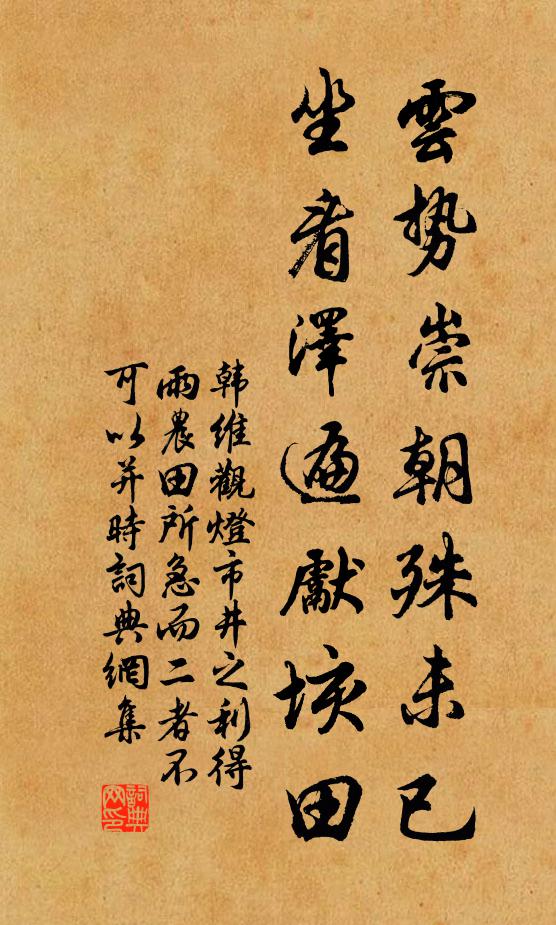 雲势崇朝殊未已
坐看澤遍獻垓田
韩維觀燈市井之利得
雨農田所急而二者不
可以并時詞典網集
詞典網印